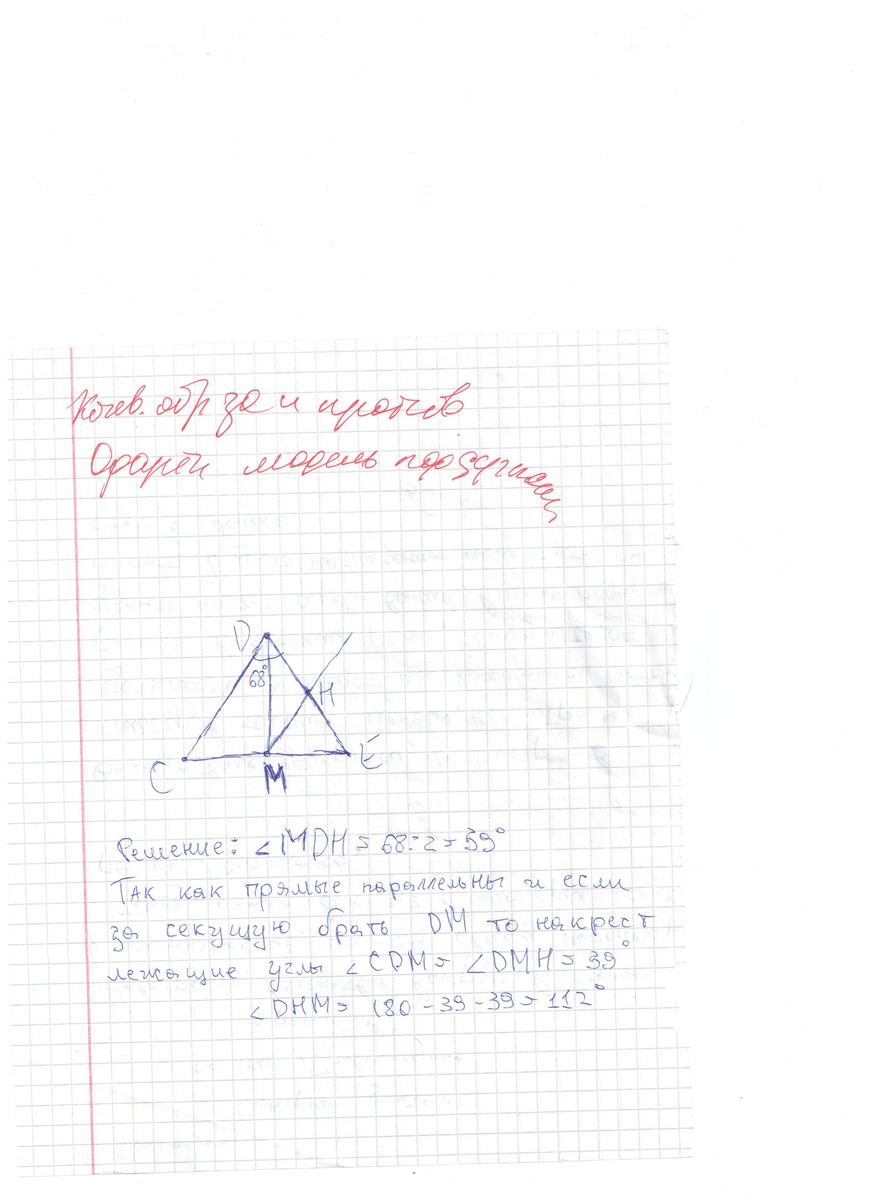 Кочев. обр за и против
Офарти модель
D
68°
H
C
M
E
Решение: ∠MDH = 68:2 = 39°
Так как прямые параллельны и если
за секущую брать DM то накрест
лежащие углы ∠CDM = ∠DMH = 39°
∠DHM = 180 - 39 - 39 = 112°